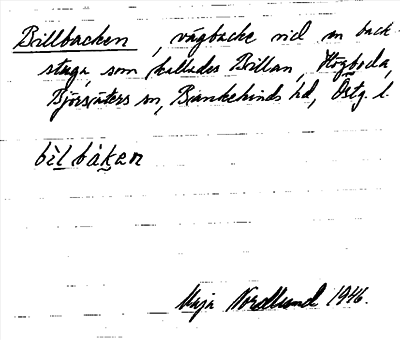 Billbacken, vägbacke vid en back
stuga, som kallades Billan, Högboda,
Björsäters sn, Bankekinds hd, Östg. l.
bìl bàken
Maja Nordlund 1946.